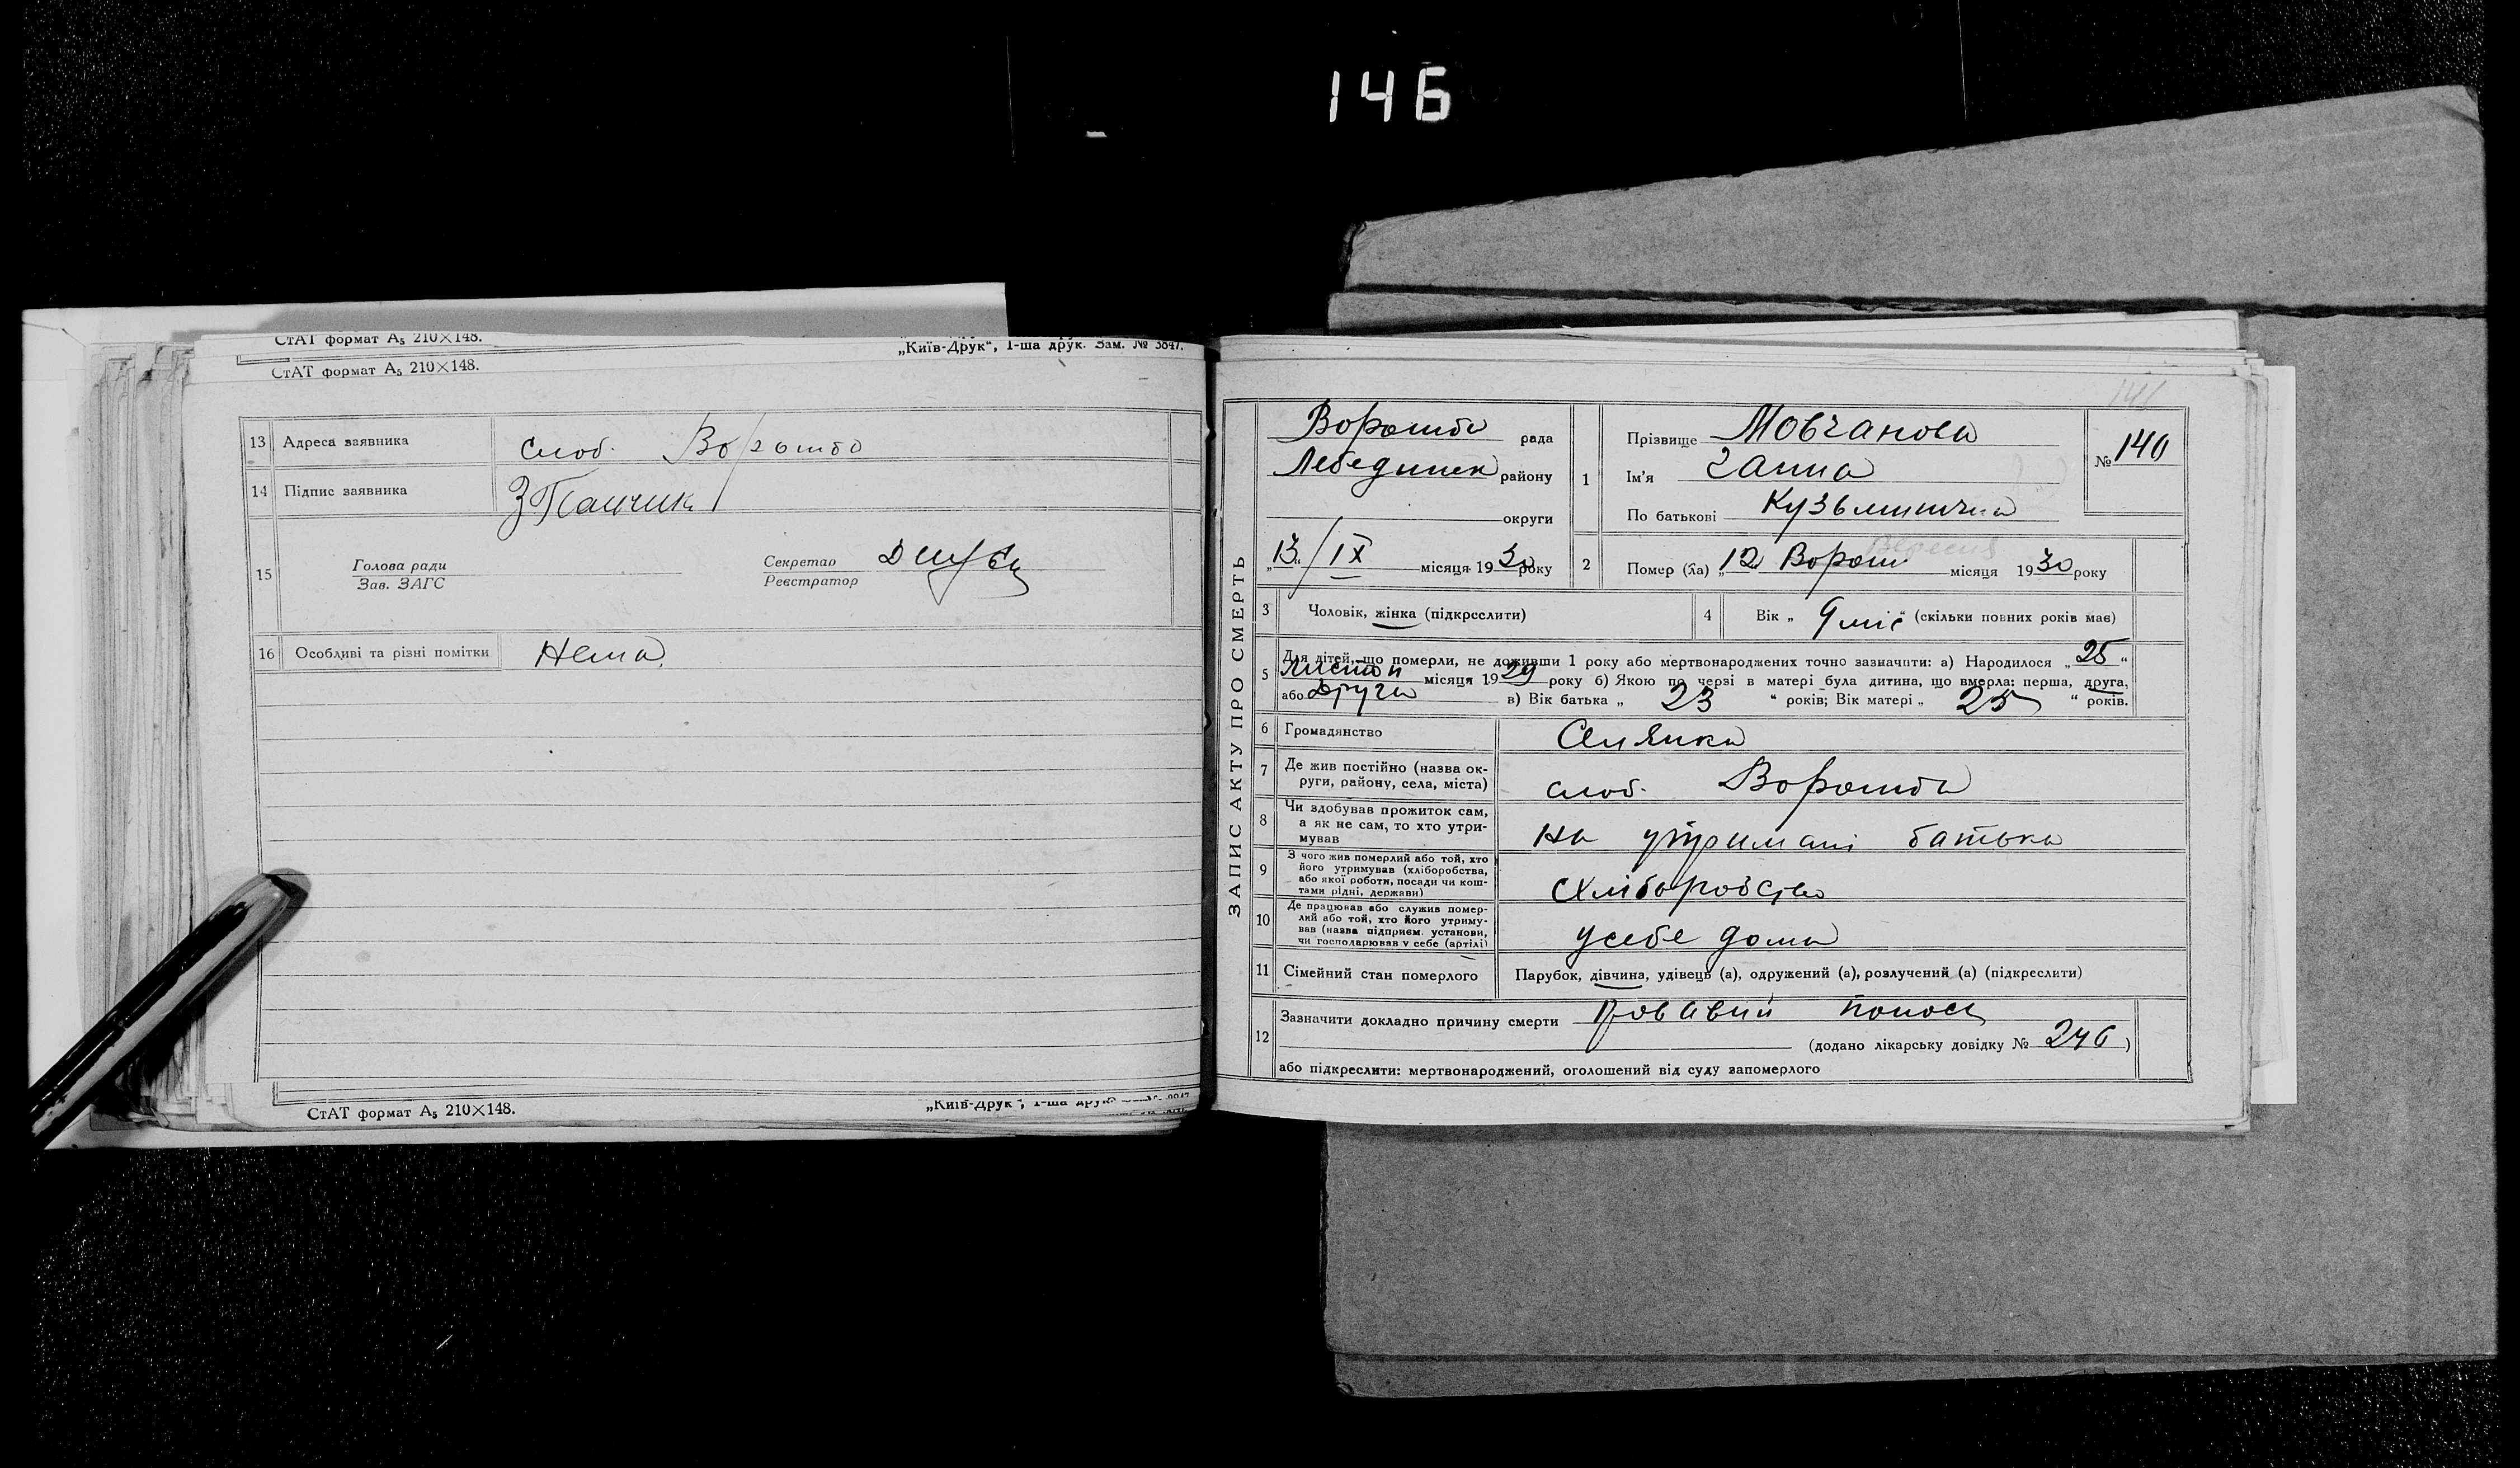 146
СтАТ формат А5 210×148.
„Київ-Друк“, 1-ша друк. Зам. № 3847.
СтАТ формат А5 210×148.
13 Адреса заявника слоб. Ворожба
14 Підпис заявника
15 Голова ради
Зав. ЗАГС
Секретар
Реєстратор
16 Особливі та різні помітки Нема.
СтАТ формат А5 210×148.
„Київ-Друк“, 1-ша друк.
ЗАПИС АКТУ ПРО СМЕРТЬ
Ворожба рада
Лебединск району
округи
„13“ IX місяця 1930 року
141
№ 140
1 Прізвище Мовчанова
Ім'я Ганна
По батькові Кузьминична
2 Помер (ла) „12 місяця 1930 року
3 Чоловік, жінка (підкреслити)
4 Вік „ 9 міс “ (скільки повних років має)
5 Для дітей, що померли, не доживши 1 року або мертвонароджених точно зазначити: а) Народилося „25“
листоп місяця 1929 року б) Якою по черзі в матері була дитина, що вмерла: перша, друга,
або друга в) Вік батька „ 23 “ років; Вік матері „ 25 “ років.
6 Громадянство Селянка
7 Де жив постійно (назва ок-
руги, району, села, міста) слоб. Ворожба
8 Чи здобував прожиток сам,
а як не сам, то хто утри-
мував на утримані батька
9 З чого жив померлий або той, хто
його утримував (хліборобства,
або якої роботи, посади чи кош-
тами рідні, держави) хліборобство
10 Де працював або служив помер-
лий або той, хто його утриму-
вав (назва підприєм. установи,
чи господарював у себе (артілі) усебе дома
11 Сімейний стан померлого Парубок, дівчина, удівець (а), одружений (а), розлучений (а) (підкреслити)
12 Зазначити докладно причину смерти Кровавий понос
(додано лікарську довідку № 246)
або підкреслити: мертвонароджений, оголошений від суду запомерлого